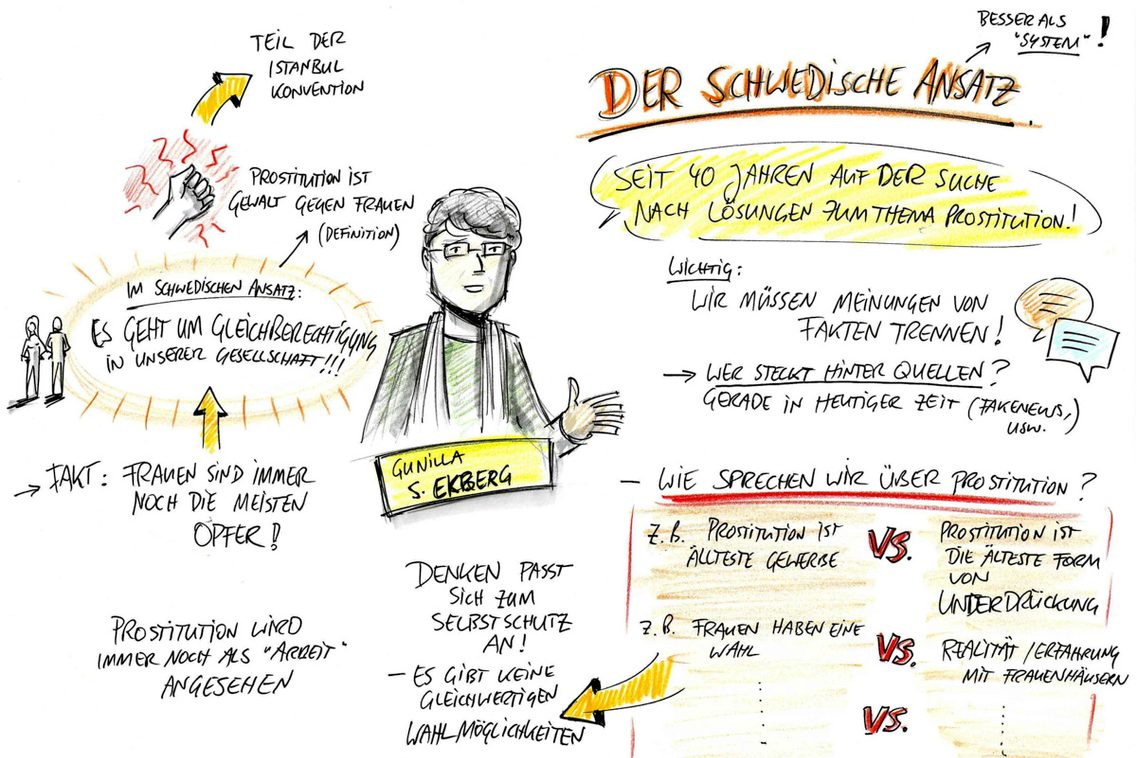 TEIL DER
ISTANBUL
KONVENTION
PROSTITUTION IST
GEWALT GEGEN FRAUEN
(DEFINITION)
IM SCHWEDISCHEN ANSATZ:
ES GEHT UM GLEICHBERECHTIGUNG
IN UNSERER GESELLSCHAFT!!!
→ FAKT: FRAUEN SIND IMMER
NOCH DIE MEISTEN
OPFER!!
PROSTITUTION WIRD
IMMER NOCH ALS "ARBEIT"
ANGESEHEN
GUNILLA
S. EKBERG
DENKEN PASST
SICH ZUM
SELBSTSCHUTZ
AN!
- ES GIBT KEINE
GLEICHWERTIGEN
WAHLMÖGLICHKEITEN
BESSER ALS
"SYSTEM"!
DER SCHWEDISCHE ANSATZ
SEIT 40 JAHREN AUF DER SUCHE
NACH LÖSUNGEN ZUM THEMA PROSTITUTION!
WICHTIG:
WIR MÜSSEN MEINUNGEN VON
FAKTEN TRENNEN!
→ WER STECKT HINTER QUELLEN?
GERADE IN HEUTIGER ZEIT (FAKENEWS,
USW.
- WIE SPRECHEN WIR ÜBER PROSTITUTION?
Z.B. PROSTITUTION IST
ÄLLTESTE GEWERBE
VS.
PROSTITUTION IST
DIE ÄLTESTE FORM
VON
UNDERDRÜCKUNG
Z.B. FRAUEN HABEN EINE
WAHL
VS.
REALITÄT/ERFAHRUNG
MIT FRAUENHÄUSERN
VS.